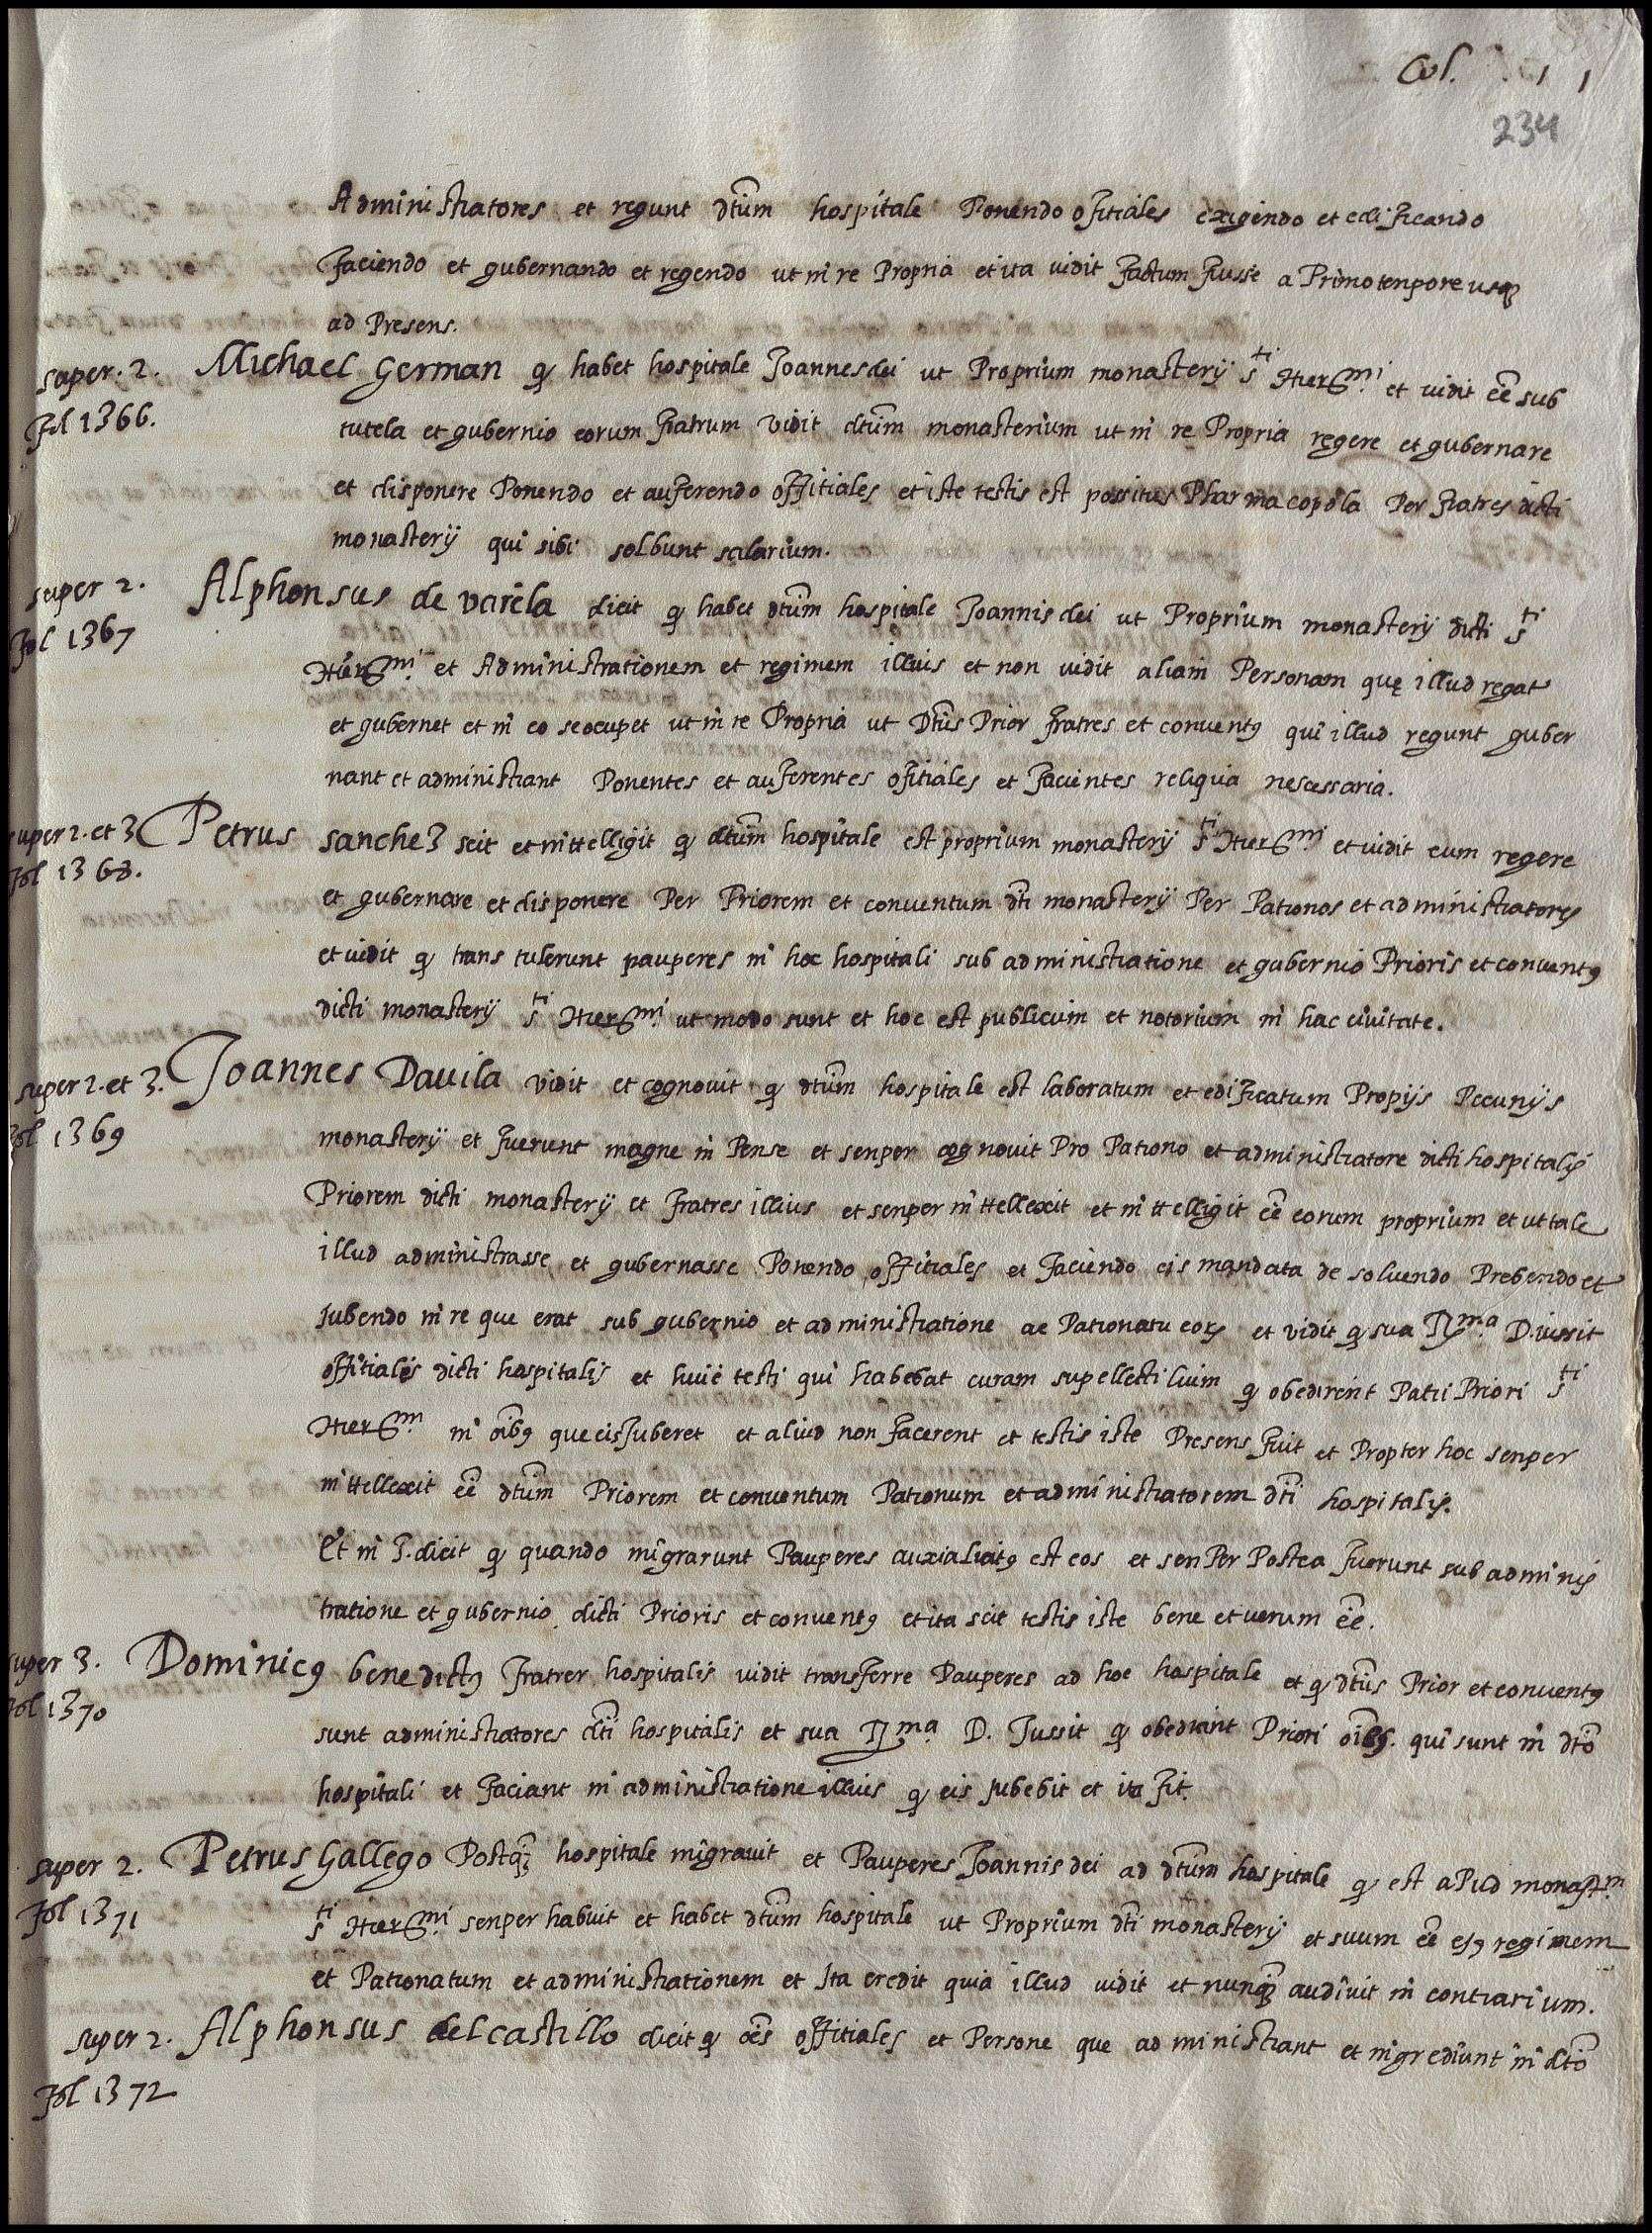 Col. 11
234
Administratores et regunt dtũm hospitale Ponendo ofitiales exigendo et edificando
faciendo et gubernando et regendo ut in re Propria et ita vidit factum fuisse a Primo tenpore usq3
ad Presens.
super. 2. Michael German q̃ habet hospitale Joannes dei ut Proprium monasterij sti Hiermi et vidit eẽ sub
fol 1366. tutela et gubernio eorum fratrum vidit dtũm monasterium ut in re Propria regere et gubernare
et disponere Ponendo et auferendo offitiales et iste testis est possitus Pharmacopola Per fratres dicti
monasterij qui sibi solbunt salarium.
super 2. Alphonsus de varela dicit q̃ habet dtũm hospitale Joannis dei ut Proprium monasterij dicti sti
fol 1367 Hiermi et Administrationem et regimem illius et non vidit aliam Personam quę illud regat
et gubernet et in eo se ocupet ut in re Propria ut Dtũs Prior fratres et convent9 qui illud regunt guber
nant et administrant Ponentes et auferentes ofitiales et facientes reliqua nescessaria.
super 2. et 3 Petrus sanchez scit et inttelligit q̃ dtũm hospitale est proprium monasterij sti Hiermi et vidit eum regere
fol 1368. et gubernare et disponere Per Priorem et conventum dti monasterij Per Patronos et administratores
et vidit q̃ trans tulerunt pauperes in hoc hospitali sub administratione et gubernio Prioris et convent9
dicti monasterij sti Hiermi ut modo sunt et hoc est publicum et notorium in hac civitate.
super 2. et 3. Joannes Davila vidit et cognovit q̃ dtũm hospitale est laboratum et edificatum Propijs Pecunijs
fol 1369 monasterij et fuerunt magne in Pense et senper cognovit Pro Patrono et administratore dicti hospitalis
Priorem dicti monasterij et fratres illius et senper inttellexit et inttelligit eẽ eorum proprium et ut tale
illud administrasse et gubernasse Ponendo offitiales et faciendo eis mandata de solvendo Prebendo et
Jubendo in re que erat sub gubernio et administratione ac Patronatu eor et vidit q̃ sua Illma D. iussit
offitialis dicti hospitalis et huic testi qui habebat curam supellectilium q̃ obedirent Patri Priori sti
Hierm in oib9 que eis Juberet et aliud non facerent et testis iste Presens fuit et Propter hoc senper
inttellexit eẽ dtũm Priorem et conventum Patronum et administratorem dti hospitalis.
Et in 3. dicit q̃ quando migrarunt Pauperes auxialiat9 est eos et senper Postea fuerunt sub adminis
tratione et gubernio dicti Prioris et convent9 et ita scit testis iste bene et verum eẽ.
super 3. Dominic9 benedict9 fratrer hospitalis vidit transferre Pauperes ad hoc hospitale et q̃ dtũs Prior et convent9
fol 1370 sunt administratores dti hospitalis et sua Illma D. Jussit q̃ obediant Priori oib9. qui sunt in dtõ
hospitali et faciant in administratione illius q̃ eis Jubebit et ita fit.
super 2. Petrus Gallego Postq̃3 hospitale migravit et Pauperes Joannis dei ad dtũm hospitale q̃ est apud monastm
fol 1371 sti Hiermi senper habuit et habet dtũm hospitale ut Proprium dti monasterij et suum eẽ ej9 regimem
et Patronatum et administrationem et Ita credit quia illud vidit et nunq̃3 audivit in contrarium.
super 2. Alphonsus del castillo dicit q̃ oẽs offitiales et Persone que administrant et ingrediunt in dtõ
fol 1372